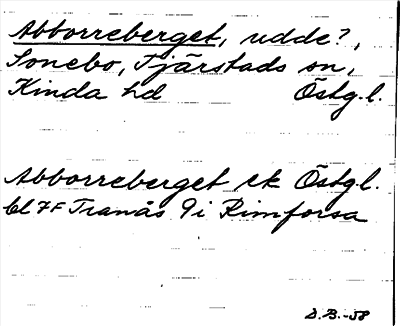 Abborreberget, udde?,
Sonebo, Tjärstads sn,
Kinda hd Östg.l.
Abborreberget ek Östgl.
bl 7F Tranås 9i Rimforsa
S.B.-58